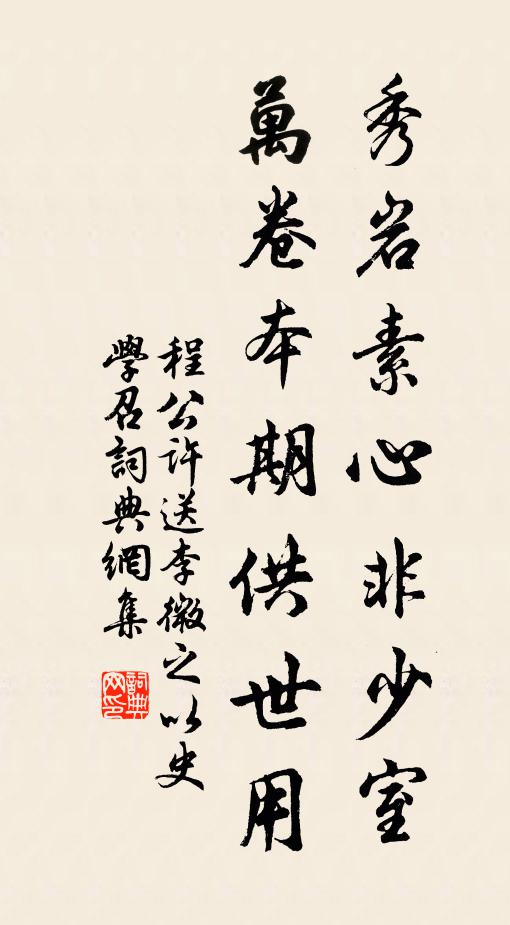 秀岩素心非少室
萬卷本期供世用
程公許送李微之以史
學召詞典網集
詞典
网印